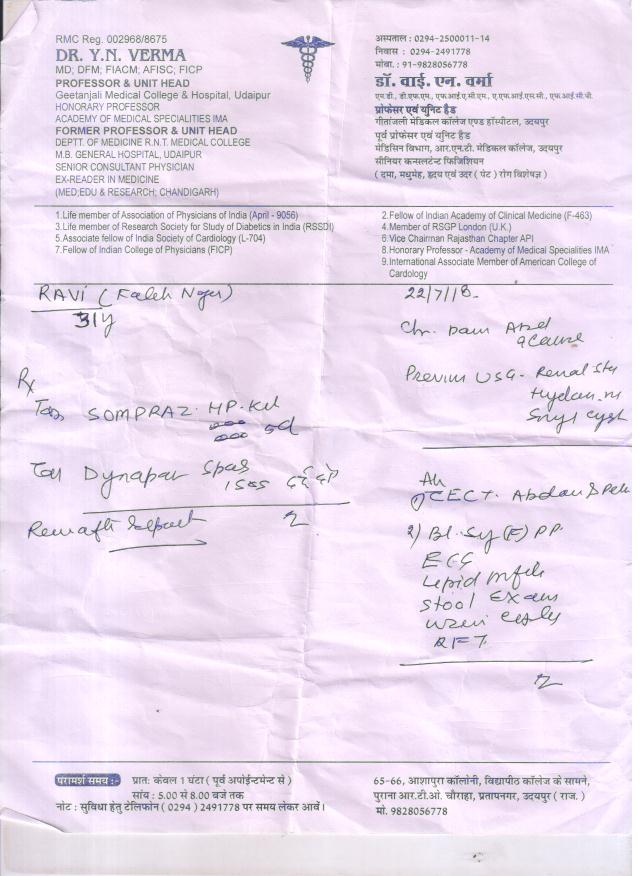 RMC Reg. 002968/8675
DR. Y.N. VERMA
MD; DFM; FIACM; AFISC; FICP
PROFESSOR & UNIT HEAD
Geetanjali Medical College & Hospital, Udaipur
HONORARY PROFESSOR
ACADEMY OF MEDICAL SPECIALITIES IMA
FORMER PROFESSOR & UNIT HEAD
DEPTT. OF MEDICINE R.N.T. MEDICAL COLLEGE
M.B. GENERAL HOSPITAL, UDAIPUR
SENIOR CONSULTANT PHYSICIAN
EX-READER IN MEDICINE
(MED;EDU & RESEARCH; CHANDIGARH)
अस्पताल : 0294-2500011-14
निवास : 0294-2491778
मोबा. : 91-9828056778
डॉ. वाई. एन. वर्मा
एम.डी., डी.एफ.एम., एफ.आई.ए.सी.एम., ए.एफ.आई.एस.सी., एफ.आई.सी.पी.
प्रोफेसर एवं यूनिट हैड
गीतांजली मेडिकल कॉलेज एण्ड हॉस्पीटल, उदयपुर
पूर्व प्रोफेसर एवं यूनिट हैड
मेडिसिन विभाग, आर.एन.टी. मेडिकल कॉलेज, उदयपुर
सीनियर कन्सलटेन्ट फिजिशियन
( दमा, मधुमेह, हृदय एवं उदर ( पेट ) रोग विशेषज्ञ )
1.Life member of Association of Physicians of India (April - 9056)
3.Life member of Research Society for Study of Diabetes in India (RSSDI)
5.Associate fellow of India Society of Cardiology (L-704)
7.Fellow of Indian College of Physicians (FICP)
2.Fellow of Indian Academy of Clinical Medicine (F-463)
4.Member of RSGP London (U.K.)
6.Vice Chairman Rajasthan Chapter API
8.Honorary Professor - Academy of Medical Specialities IMA
9.International Associate Member of American College of
Cardology
RAVI (
31y
22/7/18
Rx
SOMPRAZ HP Kit
5d
Tab Dynapar Spas
Previm USG - Renal
CECT.
2) Bl. Sy (F) PP
ECG
Stool Exam
RFT
परामर्श समय :-
प्रात: केवल 1 घंटा ( पूर्व अपोईन्टमेन्ट से )
सांय : 5.00 से 8.00 बजे तक
नोट : सुविधा हेतु टेलिफोन ( 0294 ) 2491778 पर समय लेकर आवें।
65-66, आशापुरा कॉलोनी, विद्यापीठ कॉलेज के सामने,
पुराना आर.टी.ओ. चौराहा, प्रतापनगर, उदयपुर ( राज. )
मो. 9828056778